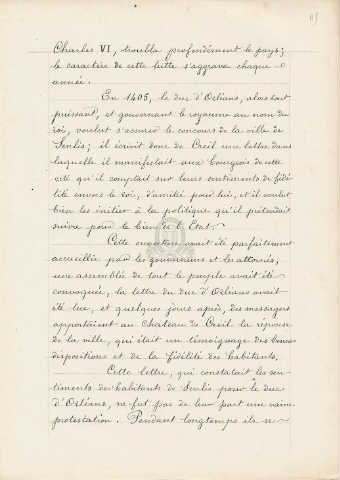 115
Charles VI, troubla profondément le pays;
le caractère de cette lutte s'aggrava chaque
année.
En 1405, le duc d'Orléans, alors tout
puissant, et gouvernant le royaume au nom du
roi, voulut s'assurer le concours de la ville de
Senlis; il écrivit donc de Creil une lettre dans
laquelle il manifestait aux bourgeois de cette
cité qu'il comptait sur leurs sentiments de fidé-
lité envers le roi, d'amitié pour lui, et il voulut
bien les initier à la politique qu'il prétendait
suivre pour le bien de l'Etat.
Cette ouverture avait été parfaitement
accueillie par les gouverneurs et les attournés,
une assemblée de tout le peuple avait été
convoquée, la lettre du duc d'Orléans avait
été lue, et quelques jours après, des messagers
apportaient au Chateau de Creil la réponse
de la ville, qui était un témoignage des bonnes
dispositions et de la fidélité des habitants.
Cette lettre, qui constatait les sen-
timents des habitants de Senlis pour le duc
d'Orléans, ne fut pas de leur part une vaine
protestation. Pendant longtemps ils se